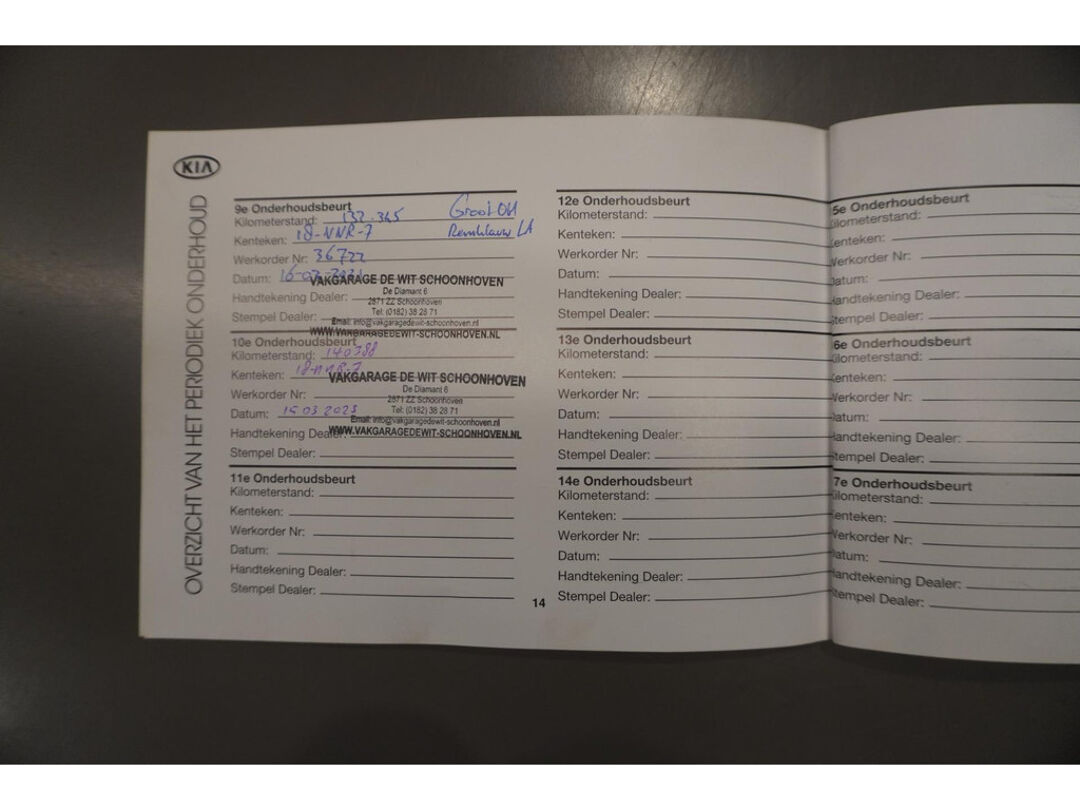 KIA
OVERZICHT VAN HET PERIODIEK ONDERHOUD
9e Onderhoudsbeurt
Kilometerstand: 132.345
Groot OH
Kenteken: 18-NNR-7
LA
Werkorder Nr: 36722
Datum: 16-02-2021
Handtekening Dealer:
Stempel Dealer:
VAKGARAGE DE WIT SCHOONHOVEN
De Diamant 6
2871 ZZ Schoonhoven
Tel: (0182) 38 28 71
Email: info@vakgaragedewit-schoonhoven.nl
WWW.VAKGARAGEDEWIT-SCHOONHOVEN.NL
10e Onderhoudsbeurt
Kilometerstand: 140388
Kenteken: 18-NNR-7
Werkorder Nr:
Datum: 15 03 2023
Handtekening Dealer:
Stempel Dealer:
VAKGARAGE DE WIT SCHOONHOVEN
De Diamant 6
2871 ZZ Schoonhoven
Tel: (0182) 38 28 71
Email: info@vakgaragedewit-schoonhoven.nl
WWW.VAKGARAGEDEWIT-SCHOONHOVEN.NL
11e Onderhoudsbeurt
Kilometerstand:
Kenteken:
Werkorder Nr:
Datum:
Handtekening Dealer:
Stempel Dealer:
14
12e Onderhoudsbeurt
Kilometerstand:
Kenteken:
Werkorder Nr:
Datum:
Handtekening Dealer:
Stempel Dealer:
13e Onderhoudsbeurt
Kilometerstand:
Kenteken:
Werkorder Nr:
Datum:
Handtekening Dealer:
Stempel Dealer:
14e Onderhoudsbeurt
Kilometerstand:
Kenteken:
Werkorder Nr:
Datum:
Handtekening Dealer:
Stempel Dealer:
5e Onderhoudsbeurt
ilometerstand:
enteken:
Werkorder Nr:
atum:
andtekening Dealer:
tempel Dealer:
6e Onderhoudsbeurt
ilometerstand:
enteken:
Werkorder Nr:
atum:
andtekening Dealer:
tempel Dealer:
7e Onderhoudsbeurt
ilometerstand:
enteken:
Werkorder Nr:
atum:
andtekening Dealer:
tempel Dealer: